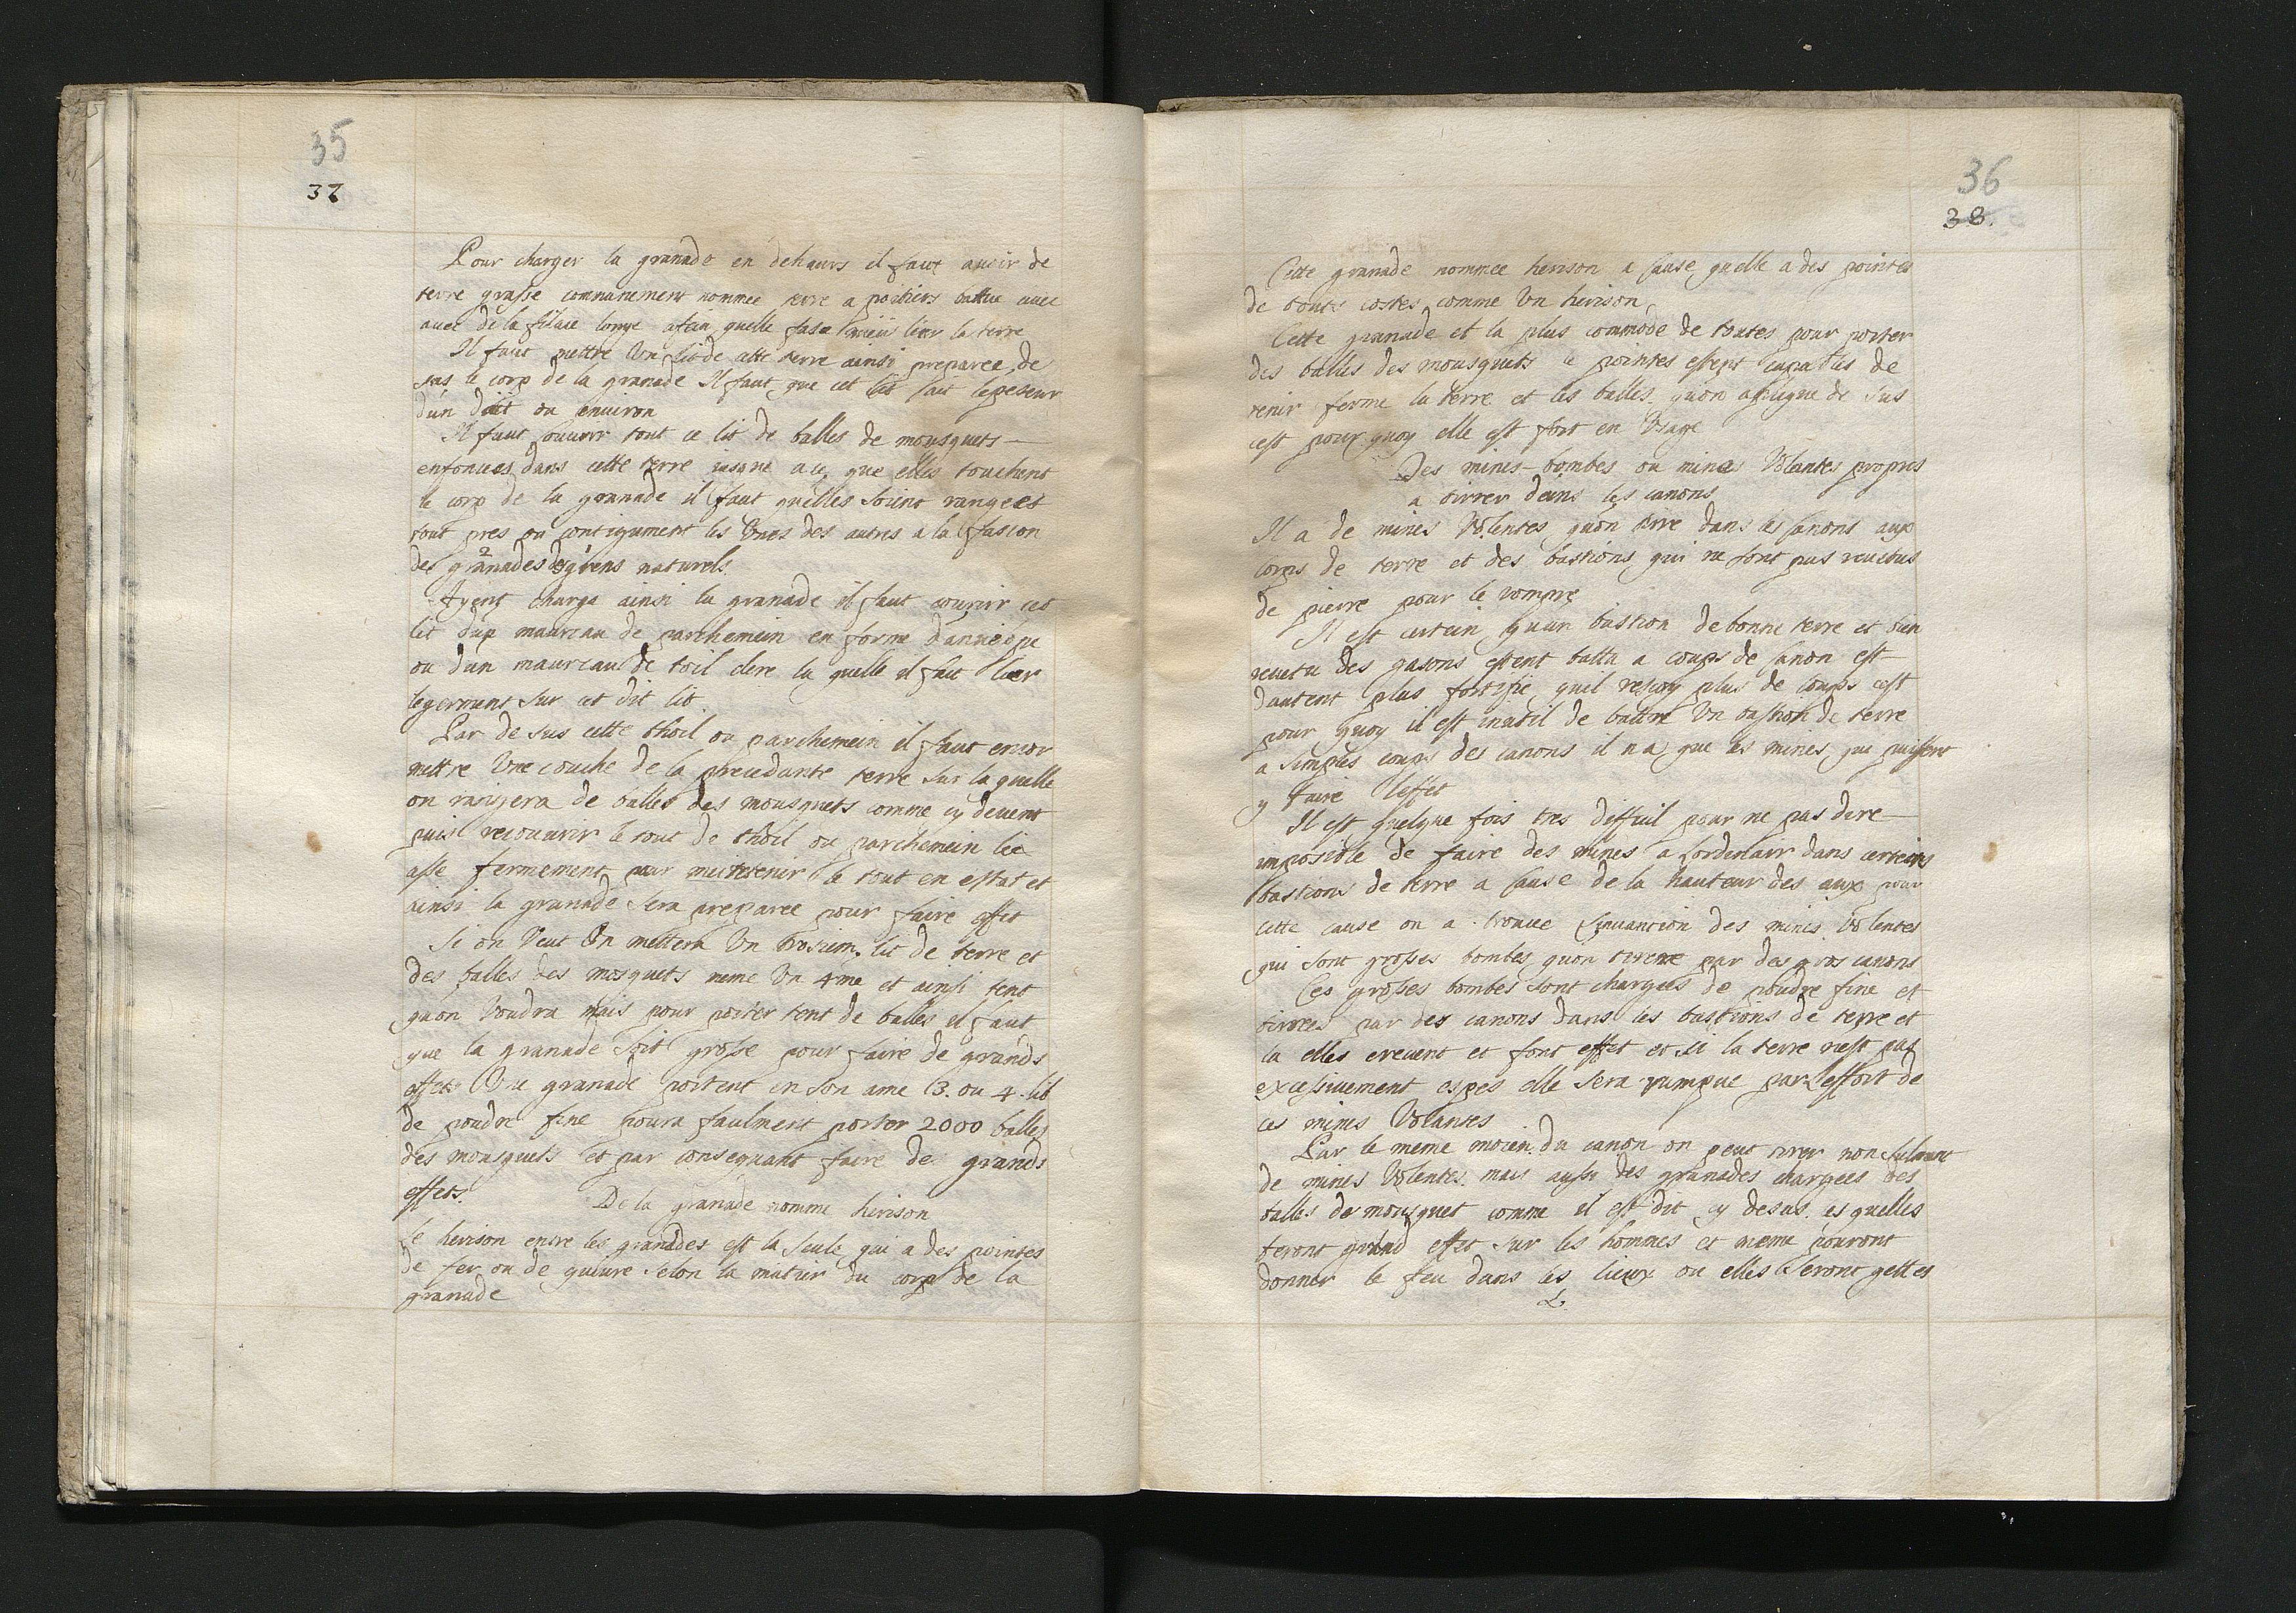 35
37
Pour charger la granade en dehaurs il faut avoir de
terre grasse communement nommee terre a poitiers battue avec
avec de la filace longe afein quelle fase mieu lier la terre
Il faut mettre Un lit de cette terre ainsi preparee, de
sus le corp de la granade Il faut que cet lit fait lepeseur
d'un doit ou environ
Il faut couvrir tout ce lit de balles de mousquets
enfoncees dans cette terre jusque a ce que elles touchent
le corp de la granade il faut quelles soient rangees
tout pres ou contigument les Unes des autres a la fasion
des granades grens naturels
Ayent charga ainsi la granade il faut couvrir cet
lit dup maurcau de parchemein en forme
ou d'un maurcau de toil cire la quelle il faut lier
legermens sur cet dit lit
Par de sus cette thoil ou parchemein il faut encor
mettre Une couche de la precedante terre sur la quelle
on rangera de balles des mousquets comme cy devent
puis recouvrir le tout de thoil ou parchemein lie
asse fermement pour meintenir le tout en estat et
ainsi la granade sera preparee pour faire effet
Si on Veut On mettera Un trosiem lit de terre et
des balles des mosquets meme Un 4me et ainsi tent
quon Voudra mais pour porter tent de balles il faut
que la granade soit grosse pour faire de grands
effets Une granade portent en son ame 3. ou 4. lib
de poudre fine poura faulment porter 2000 balles
des mousquets et par consequant faire de grands
effets.
De la granade nomme herison
Le herison entre les granades est la seule qui a des pointes
de fer ou de quivre selon la matier du corp de la
granade
36
38.
Cette granade nommee herison a cause quelle a des pointes
de touts costes comme Un herison
Cette granade et la plus commode de toutes pour porter
des balles des mousquets ce pointes estent capables de
tenir ferme la terre et les balles quon aplique de sus
cest pour quoy elle est fort en Usage
Des mines-bombes ou mines Volantes propres
a tirrer dains les canons
Il a de mines Volentes quon tire dans les canons aux
corps de terre et des bastions qui ne sont pas reuestus
de pierre pour le rompre
Il est certein quun bastion de bonne terre et bien
reuetu des gasons estent battu a coups de canon est
dautent plus fortifie quil resoy plus de coups cest
pour quoy il est inutil de battre Un bastion de terre
a simples coups des canons il n a que les mines que puissent
y faire leffet
Il est quelque fois tres difficil pour ne pas dire
imposible de faire des mines a lordenair dans certeins
bastions de terre a cause de la hauteur des aux pour
cette cause on a trouve linvantion des mines Volentes
qui sont grosses bombes quon tirene par des gros canons
Ces grosses bombes sont chargees de poudre fine et
tirrees par des canons dans les bastions de terre et
la elles crevent et font effet et si la terre nest pas
excessivement espes elle sera rumpue par leffort de
ces mines Volantes
Par le meme moien du canon on peut tirer non sulement
de mines Volentes mais aussi des granades chargees des
balles de mousquet comme il est dit cy desus es quelles
feront grand effet sur les hommes et meme pouront
donner le feu dans les lieux ou elles seront gettes